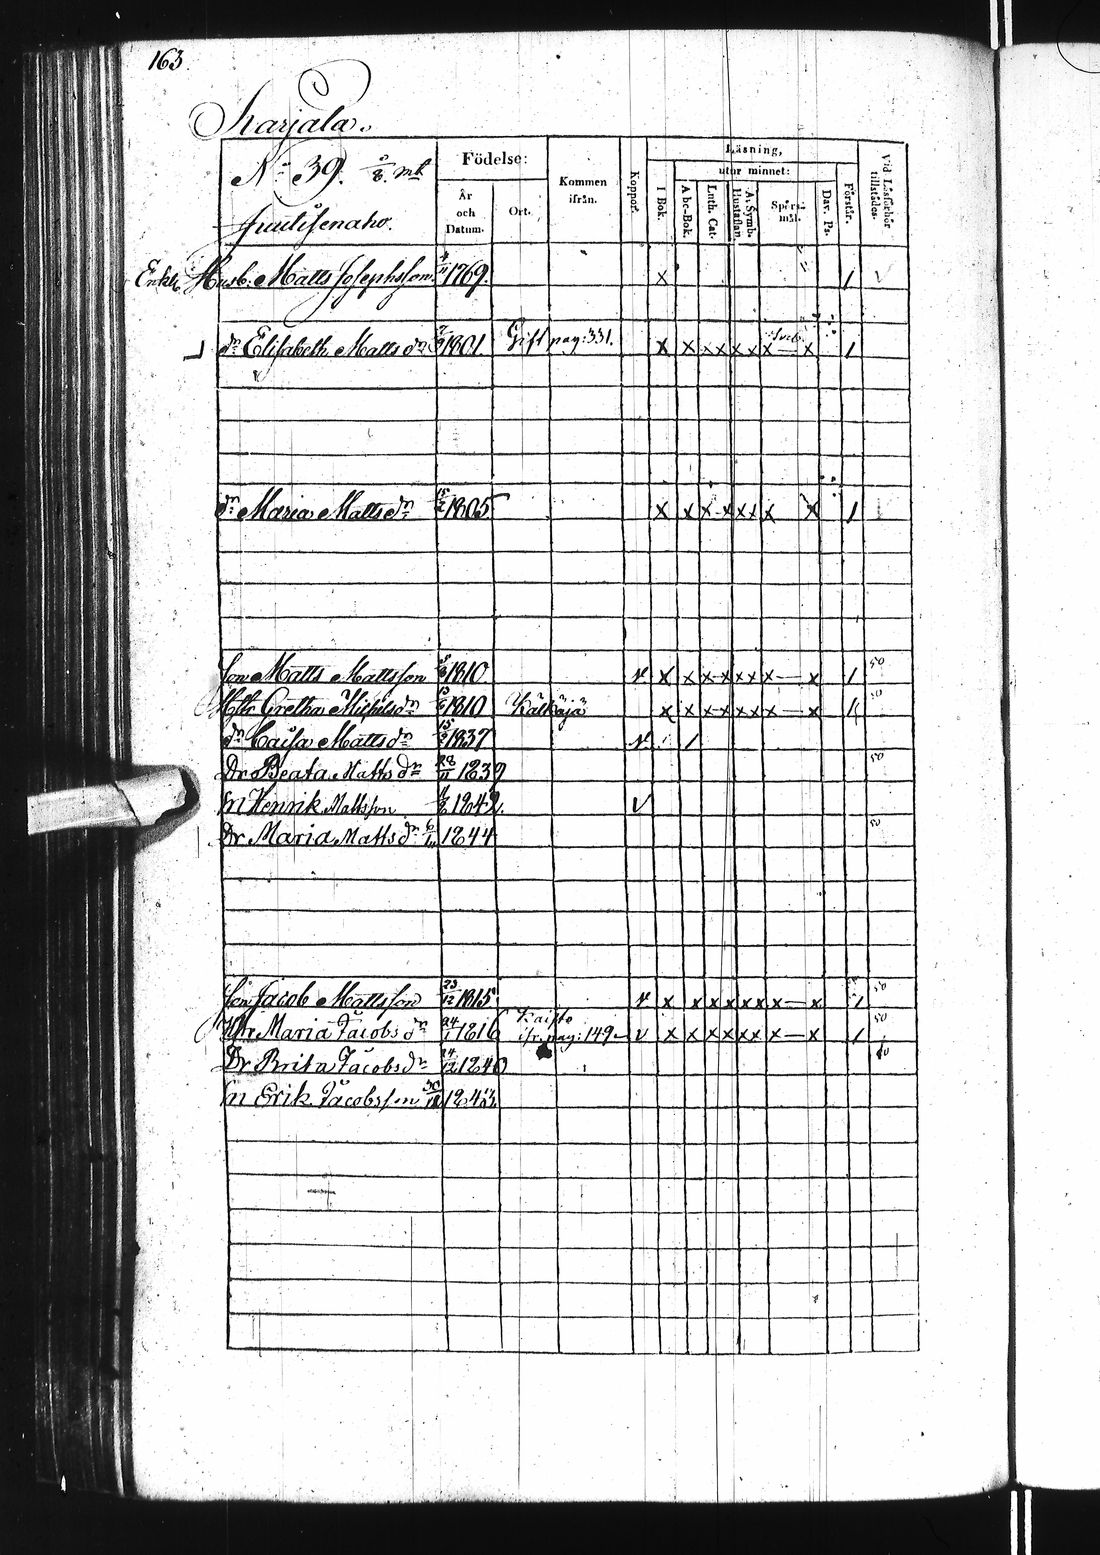 163.
Karjala.
No 39. 5/8. mtl
Juutisenaho.
Födelse:
År och Datum.
Ort.
Kommen ifrån.
Koppor.
Läsning,
utur minnet:
I Bok.
Abc-Bok.
Luth. Cat.
A. Symb. Hustaflan.
Spörsmål.
Dav. Ps.
Förstår.
Vid Läsförhör tillstädes.
Enkl. Husb. Matts Josephsson. 1769. x 1
dr Elisabeth Matts dr 1801. Gift pag: 331. x x x x x x x — x 1
dr Maria Matts dr 15/2 1805 x x x x x x x x 1
Son Matts Mattsson 1810 v x x x x x x x — x 1 50
Hstr Gretha Michelsdr 1810 Kälkäjä x x x x x x x — x 1 50
dr Caisa Mattsdr 1837 v 1
Dr Beata Matts dr 28/11 1839 50
Sn Henrik Mattsson 1842. v
Dr Maria Matts dr 1844 50
Son Jacob Mattsson 23/12 1815 v x x x x x x x — x 1 50
Hstr Maria Jacobs dr 24/1 1816 Kaisto ifr. pag: 149 v x x x x x x x — x 1 50
Dr Brita Jacobsdr 24/12 1840
Sn Erik Jacobsson 1843